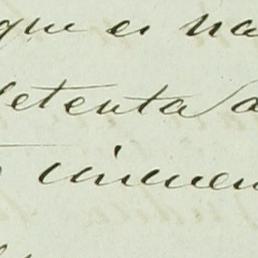 que es na
setenta a
cincuen